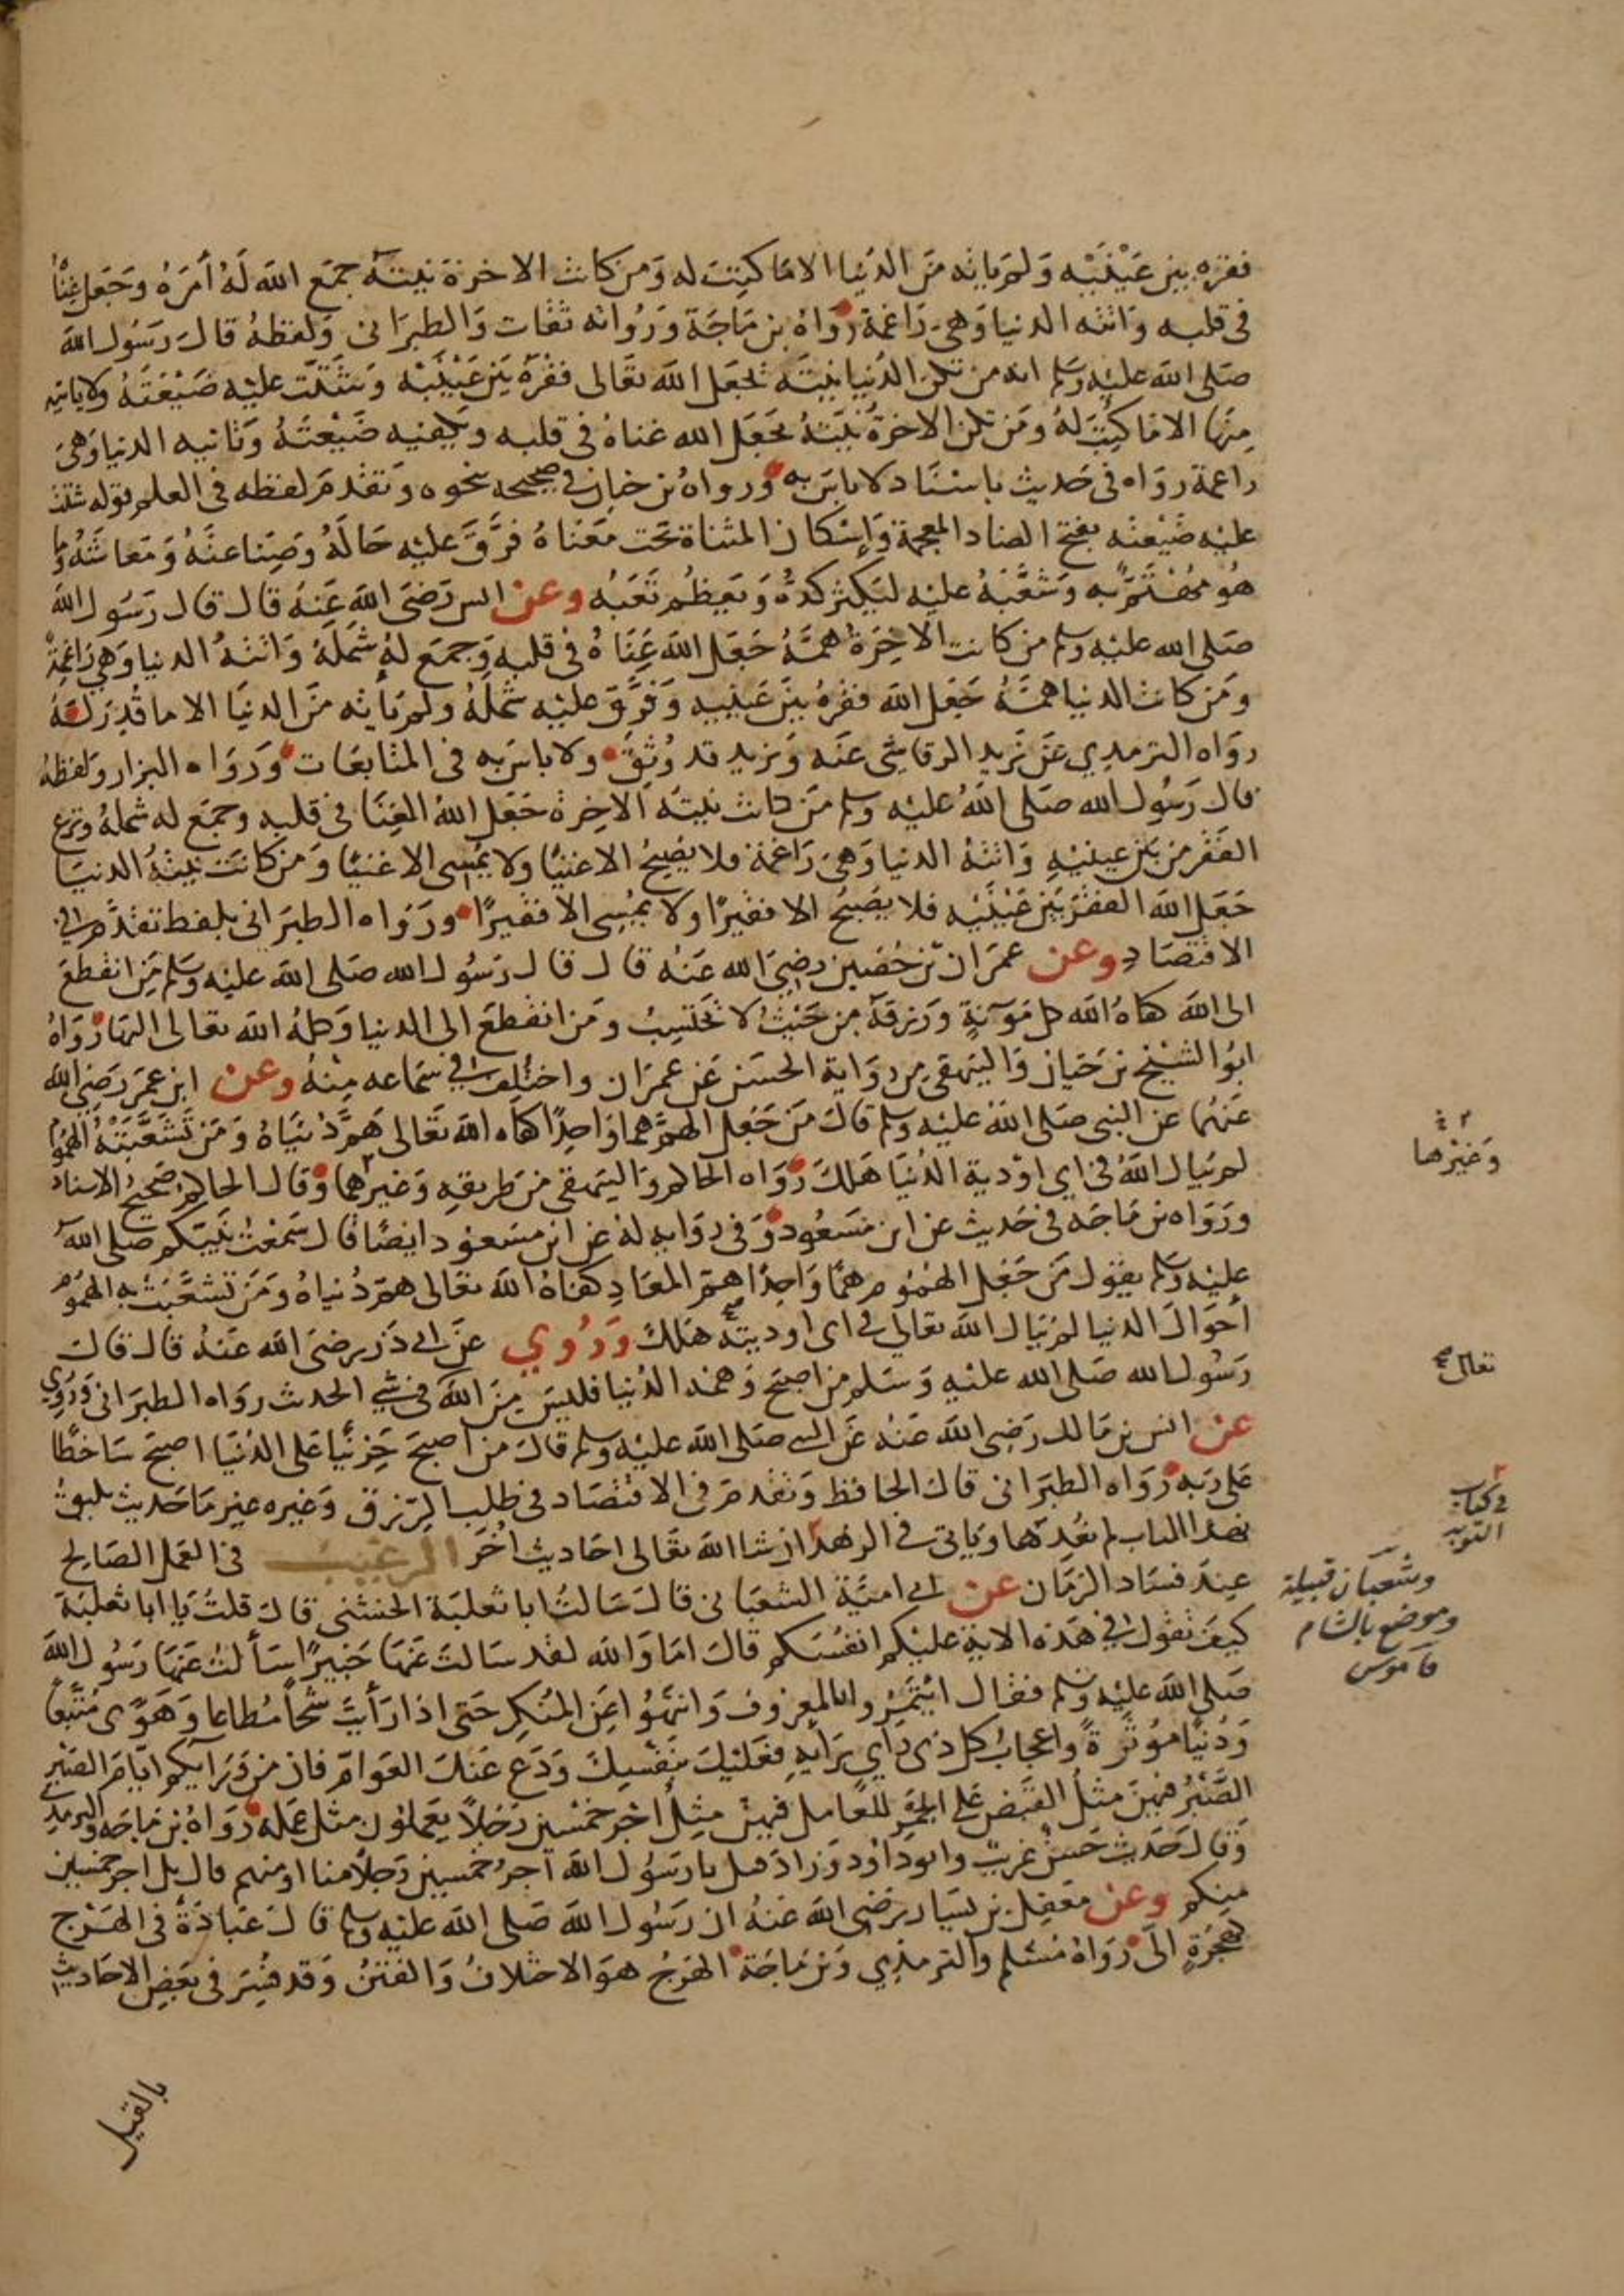 فقره بين عينيه ولم ياته من الدنيا الا ما كتبت له ومن كانت الاخرة نيته جمع الله له أمره وجعل غناه
في قلبه واتته الدنيا وهي راغمة رواه بن ماجة ورواته ثقات والطبراني ولفظه قال رسول الله
صلى الله عليه وسلم انه من تكن الدنيا نيته يجعل الله تعالى فقره بين عينيه ويشتت عليه ضيعته ولا ياتيه
منها الا ما كتب له ومن تكن الاخرة نيته يجعل الله غناه في قلبه ويكفيه ضيعته وتاتيه الدنيا وهي
راغمة رواه في حديث باسناد لا باس به ورواه بن حبان في صحيحه بنحوه وتقدم لفظه في العلم قوله شتت
عليه ضيعته بفتح الضاد المعجمة وإسكان المثناة تحت معناه فرق عليه حاله وصناعته ومعاشه وما
هو مهتم به وشعبه عليه ليكثر كده ويعظم تعبه وعن انس رضي الله عنه قال قال رسول الله
صلى الله عليه وسلم من كانت الاخرة همه جعل الله غناه في قلبه وجمع له شمله واتته الدنيا وهي راغمة
ومن كانت الدنيا همه جعل الله فقره بين عينيه وفرق عليه شمله ولم ياته من الدنيا الا ما قدر له
رواه الترمذي عن يزيد الرقاشي عنه ويزيد قد وثق ولا باس به في المتابعات ورواه البزار ولفظه
قال رسول الله صلى الله عليه وسلم من كانت نيته الاخرة جعل الله الغنا في قلبه وجمع له شمله ونزع
الفقر من بين عينيه واتته الدنيا وهي راغمة فلا يصبح الا غنيا ولا يمسى الا غنيا ومن كانت نيته الدنيا
جعل الله الفقر بين عينيه فلا يصبح الا فقيرا ولا يمسى الا فقيرا ورواه الطبراني بلفظ تقدم في
الاقتصاد وعن عمران بن حصين رضي الله عنه قال قال رسول الله صلى الله عليه وسلم من انقطع
الى الله كفاه الله كل مؤنة ورزقه من حيث لا يحتسب ومن انقطع الى الدنيا وكله الله تعالى اليها رواه
ابو الشيخ بن حبان والبيهقي من رواية الحسن عن عمران واختلف في سماعه منه وعن ابن عمر رضي الله
عنهما عن النبي صلى الله عليه وسلم قال من جعل الهم هما واحدا كفاه الله تعالى هم دنياه ومن تشعبته الهموم
لم يبال الله في اي اودية الدنيا هلك رواه الحاكم والبيهقي من طريقه وغيرهما وقال الحاكم صحيح الاسناد
ورواه بن ماجه في حديث عن ابن مسعود وفي رواية له عن ابن مسعود ايضا قال سمعت نبيكم صلى الله
عليه وسلم يقول من جعل الهموم هما واحدا هم المعاد كفاه الله تعالى هم دنياه ومن تشعبت به الهموم
أحوال الدنيا لم يبال الله تعالى في اى اوديته هلك وروي عن ابي ذر رضي الله عنه قال قال
رسول الله صلى الله عليه وسلم من اصبح وهمه الدنيا فليس من الله في شي الحدث رواه الطبراني وروي
عن انس بن مالك رضي الله عنه عن النبي صلى الله عليه وسلم قال من اصبح حزينا على الدنيا اصبح ساخطا
على ربه رواه الطبراني قال الحافظ وتقدم في الاقتصاد في طلب الرزق وغيره غير ما حديث يليق
بهذا الباب لم نعدها وياتى في الزهد ان شا الله تعالى احاديث أخر الترغيب في العمل الصالح
عند فساد الزمان عن ابي امية الشعباني قال سالت ابا ثعلبة الخشني قال قلت يا ابا ثعلبة
كيف تقول في هذه الاية عليكم انفسكم قال اما والله لقد سالت عنها خبيرا سألت عنها رسول الله
صلى الله عليه وسلم فقال ائتمروا بالمعروف وانتهوا عن المنكر حتى اذا رأيت شحا مطاعا وهوى متبعا
ودنيا موثرة واعجاب كل ذي راي برايه فعليك بنفسك ودع عنك العوام فان من ورايكم ايام الصبر
الصبر فيهن مثل القبض على الجمر للعامل فيهن مثل أجر خمسين رجلا يعملون مثل عمله رواه بن ماجه والترمذي
وقال حديث حسن غريب وابو داود وزاد قيل يا رسول الله أجر خمسين رجلا منا او منهم قال بل اجر خمسين
منكم وعن معقل بن يسار رضي الله عنه ان رسول الله صلى الله عليه وسلم قال عبادة في الهرج
كهجرة الى رواه مسلم والترمذي وبن ماجة الهرج هو الاختلاف والفتن وقد فسر في بعض الاحاديث
بالقتل
وغيرها
تعالى صح
في كتاب
التوبه
وشعبان قبيلة
وموضع بالشام
قاموس